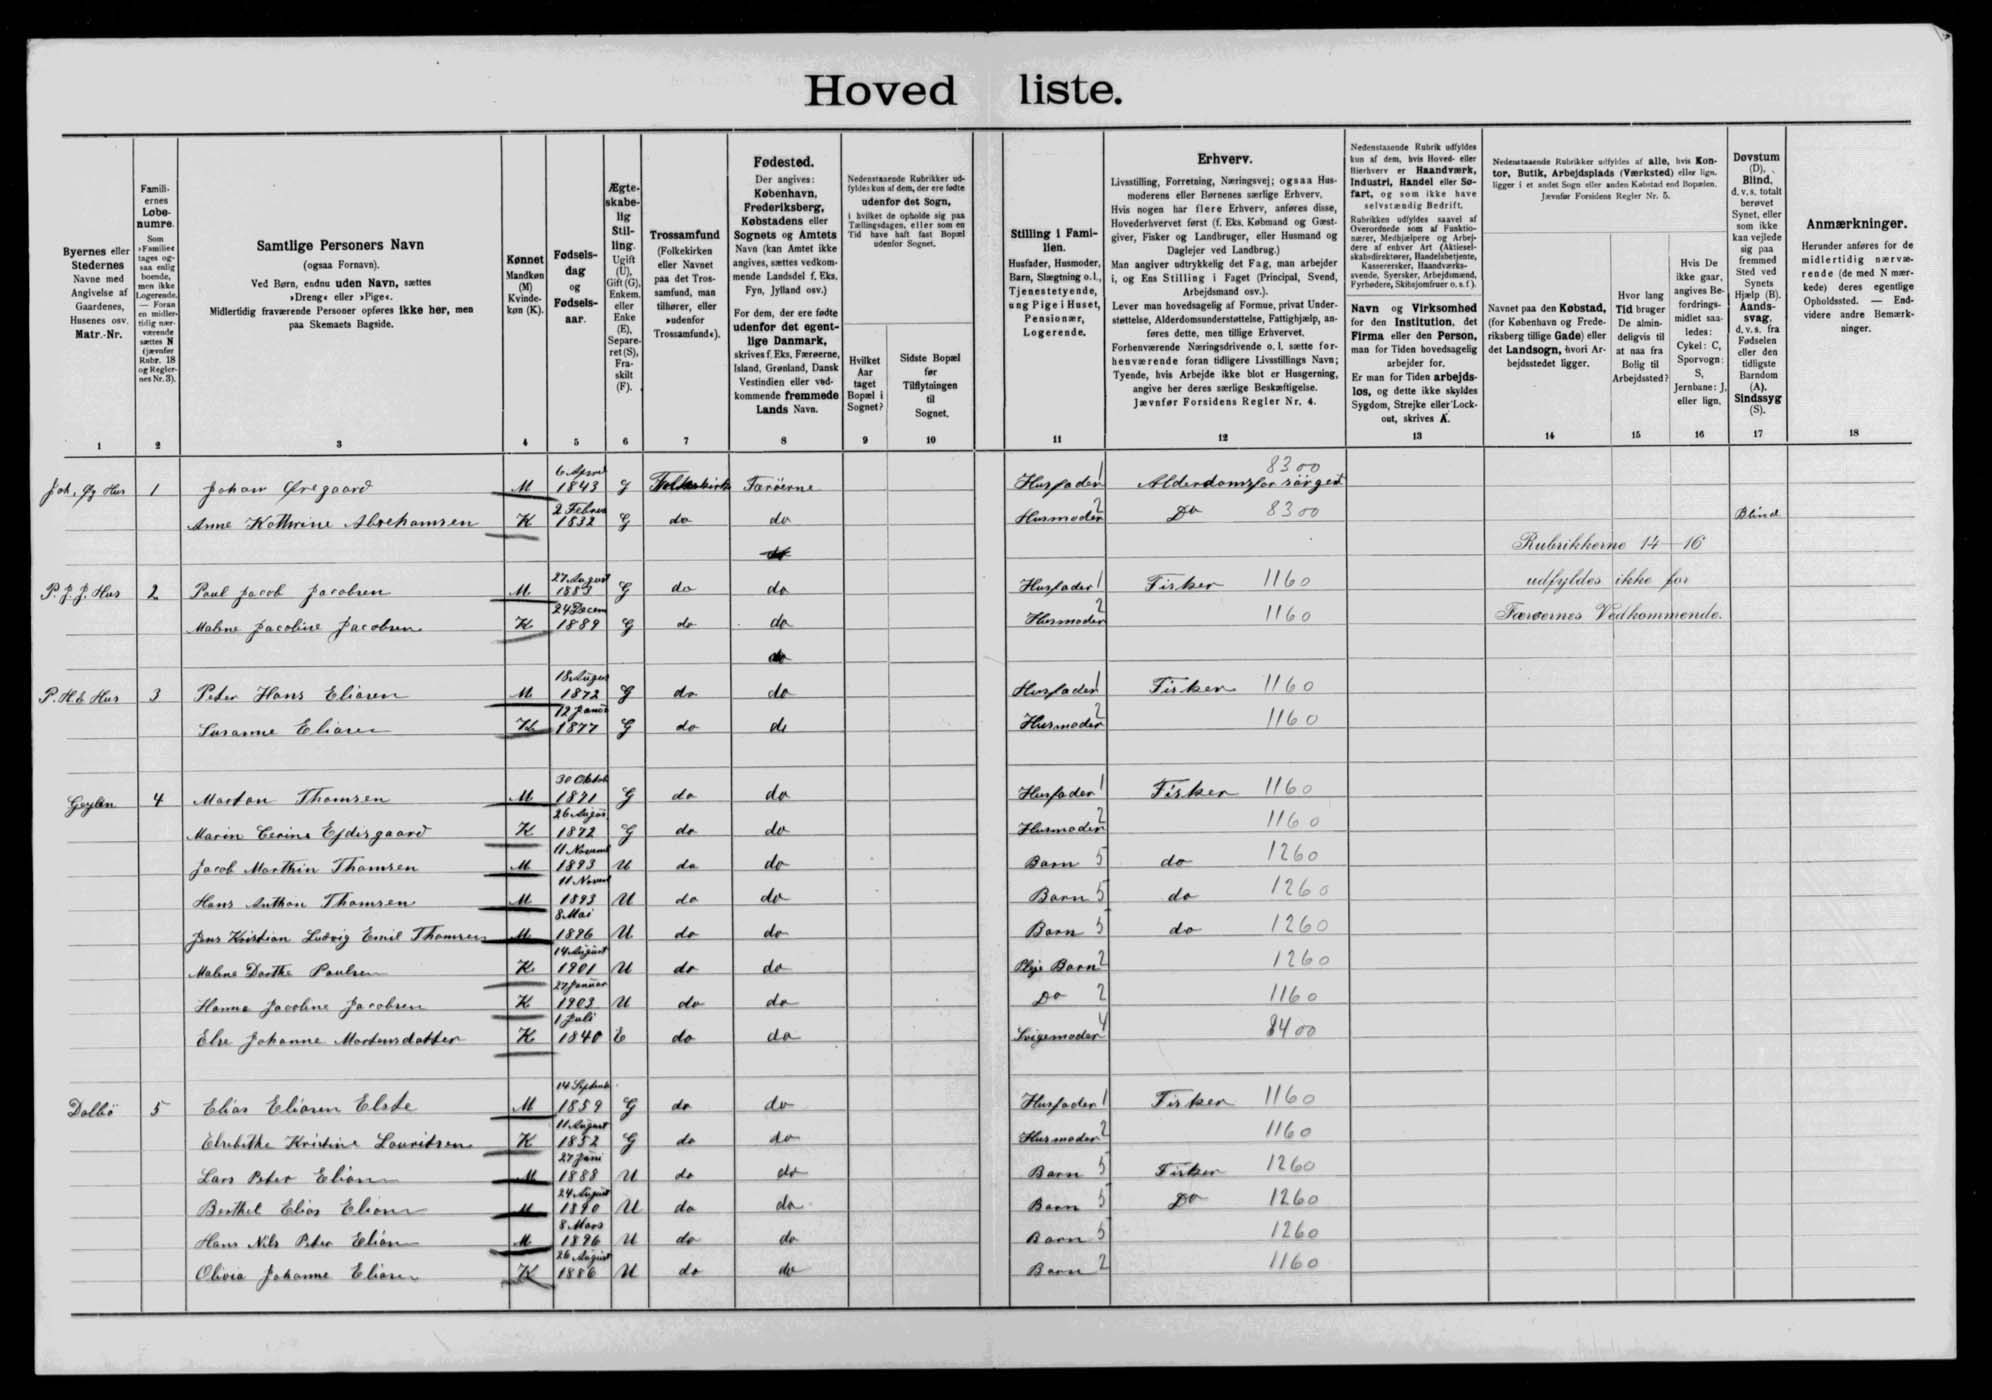 Hovedliste.
Byernes eller Stedernes Navne med Angivelse af Gaardenes, Husenes osv. Matr.-Nr.
Familiernes Løbenumre. Som »Familie« tages ogsaa enlig boende, men ikke Logerende. — Foran en midlertidig nærværende sættes N (jævnfør Rubr. 18 og Regler­nes Nr. 3).
Samtlige Personers Navn
(ogsaa Fornavn).
Ved Børn, endnu uden Navn, sættes
»Dreng« eller »Pige«.
Midlertidig fraværende Personer opføres ikke her, men
paa Skemaets Bagside.
Kønnet Mandkøn (M) Kvindekøn (K).
Fødselsdag og Fødselsaar.
Ægteskabelig Stilling. Ugift (U), Gift (G), Enkem. eller Enke (E), Separeret (S), Fraskilt (F).
Trossamfund (Folkekirken eller Navnet paa det Trossamfund, man tilhører, eller »udenfor Trossamfund«).
Fødested.
Der angives: København, Frederiksberg, Købstadens eller Sognets og Amtets Navn (kan Amtet ikke angives, sættes vedkommende Landsdel f. Eks. Fyn, Jylland osv.)
For dem, der ere fødte udenfor det egentlige Danmark, skrives f. Eks. Færøerne, Island, Grønland, Dansk Vestindien eller vedkommende fremmede Lands Navn.
Nedenstaaende Rubrikker udfyldes kun af dem, der ere fødte udenfor det Sogn, i hvilket de opholde sig paa Tællingsdagen, eller som en Tid have haft fast Bopæl udenfor Sognet.
Hvilket Aar taget Bopæl i Sognet?
Sidste Bopæl før Tilflytningen til Sognet.
Stilling i Familien.
Husfader, Husmoder, Barn, Slægtning o. l., Tjenestetyende, ung Pige i Huset, Pensionær, Logerende.
Erhverv.
Livsstilling, Forretning, Næringsvej; ogsaa Husmoderens eller Børnenes særlige Erhverv.
Hvis nogen har flere Erhverv, anføres disse, Hovederhvervet først (f. Eks. Købmand og Gæstgiver, Fisker og Landbruger, eller Husmand og Daglejer ved Landbrug.)
Man angiver udtrykkelig det Fag, man arbejder i, og Ens Stilling i Faget (Principal, Svend, Arbejdsmand osv.).
Lever man hovedsagelig af Formue, privat Understøttelse, Alderdomsunderstøttelse, Fattighjælp, anføres dette, men tillige Erhvervet.
Forhenværende Næringsdrivende o. l. sætte forhenværende foran tidligere Livsstillings Navn; Tyende, hvis Arbejde ikke blot er Husgerning, angive her deres særlige Beskæftigelse.
Jævnfør Forsidens Regler Nr. 4.
Nedenstaaende Rubrik udfyldes kun af dem, hvis Hoved- eller Bierhverv er Haandværk, Industri, Handel eller Søfart, og som ikke have selvstændig Bedrift.
Rubrikken udfyldes saavel af Overordnede som af Funktionærer, Medhjælpere og Arbejdere af enhver Art (Aktieselskabsdirektører, Handelsbetjente, Kasserersker, Haandværkssvende, Syersker, Arbejdsmænd, Fyrbødere, Skibsjomfruer o. s. f.).
Navn og Virksomhed for den Institution, det Firma eller den Person, man for Tiden hovedsagelig arbejder for.
Er man for Tiden arbejdsløs, og dette ikke skyldes Sygdom, Strejke eller Lockout, skrives A.
Nedenstaaende Rubrikker udfyldes af alle, hvis Kontor, Butik, Arbejdsplads (Værksted) eller lign. ligger i et andet Sogn eller anden Købstad end Bopælen.
Jævnfør Forsidens Regler Nr. 5.
Navnet paa den Købstad, (for København og Frederiksberg tillige Gade) eller det Landsogn, hvori Arbejdsstedet ligger.
Hvor lang Tid bruger De almindeligvis til at naa fra Bolig til Arbejdssted?
Hvis De ikke gaar, angives Befordringsmidlet saaledes: Cykel: C, Sporvogn: S, Jernbane: J, eller lign.
Døvstum (D), Blind, d. v. s. totalt berøvet Synet, eller som ikke kan vejlede sig paa fremmed Sted ved Synets Hjælp (B). Aandssvag, d. v. s. fra Fødselen eller den tidligste Barndom (A). Sindssyg (S).
Anmærkninger.
Herunder anføres for de midlertidig nærværende (de med N mærkede) deres egentlige Opholdssted. — Endvidere andre Bemærkninger.
1 2 3 4 5 6 7 8 9 10 11 12 13 14 15 16 17 18
Joh. Øg Hus 1 Johan Øregaard M 6 April 1843 G Folkekirk Færöerne Husfader 1 Alderdomsforsörget 8300
Anne Kathrine Abrahamsen K 2 Febru 1832 G do do Husmoder 2 Do 8300 Blind
do
Rubrikkerne 14-16
P. J. J. Hus 2 Poul Jacob Jacobsen M 27 August 1883 G do do Husfader 1 Fisker 1160 udfyldes ikke for
Malene Jacobine Jacobsen K 24 Decem 1889 G do do Husmoder 2 1160 Færøernes Vedkommende.
do
P. H. E. Hus 3 Peter Hans Eliasen M 18 Augus 1872 G do do Husfader 1 Fisker 1160
Susanne Eliasen K 12 Janu 1877 G do do Husmoder 2 1160
Geylen 4 Morton Thomsen M 30 Oktob 1871 G do do Husfader 1 Fisker 1160
Marin Cerine Ejdesgaard K 26 Augus 1872 G do do Husmoder 2 1160
Jacob Marthin Thomsen M 11 Novemb 1893 U do do Barn 5 do 1260
Hans Anthon Thomsen M 11 Novem 1893 U do do Barn 5 do 1260
Jens Kristian Ludvig Emil Thomsen M 8 Mai 1896 U do do Barn 5 do 1260
Malene Dorthe Poulsen K 14 August 1901 U do do Pleje Barn 2 1260
Hanna Jacobine Jacobsen K 27 Januar 1903 U do do Do 2 1160
Else Johanne Mortensdatter K 1 Juli 1840 E do do Svigemoder 4 8400
Dalbö 5 Elias Eliasen Elste M 14 Septemb 1859 G do do Husfader 1 Fisker 1160
Elsebethe Kristine Lauritsen K 11 August 1852 G do do Husmoder 2 1160
Lars Peter Eliasen M 27 Juni 1888 U do do Barn 5 Fisker 1260
Berthel Elias Eliasen M 24 August 1890 U do do Barn 5 Do 1260
Hans Nils Peter Eliasen M 8 Mars 1896 U do do Barn 5 1260
Olivia Johanne Eliasen K 26 August 1886 U do do Barn 2 1160